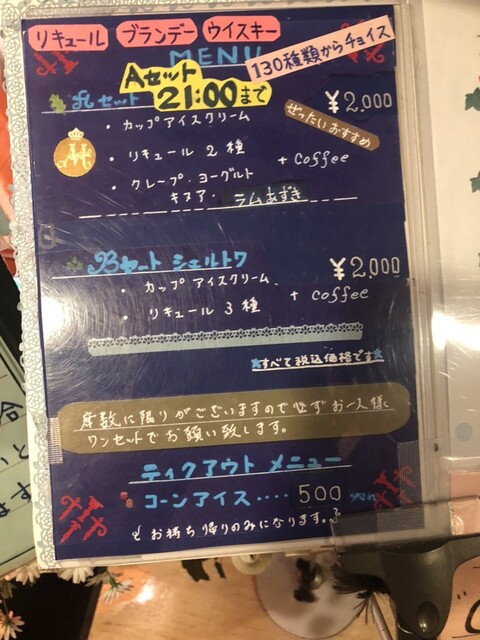 リキュール ブランデー ウイスキー
MENU
130種類からチョイス
Aセット
21:00まで
セット ¥2,000
・カップアイスクリーム
ぜったいおすすめ
・リキュール 2種 + coffee
・クレープ・ヨーグルト
キヌア・ラムあずき
Bセット シェルトワ ¥2,000
・カップアイスクリーム
・リキュール 3種 + coffee
★すべて税込価格です★
席数に限りがございますので必ずお一人様
ワンセットでお願い致します。
ティクアウト メニュー
コーンアイス・・・・500
お持ち帰りのみになります。